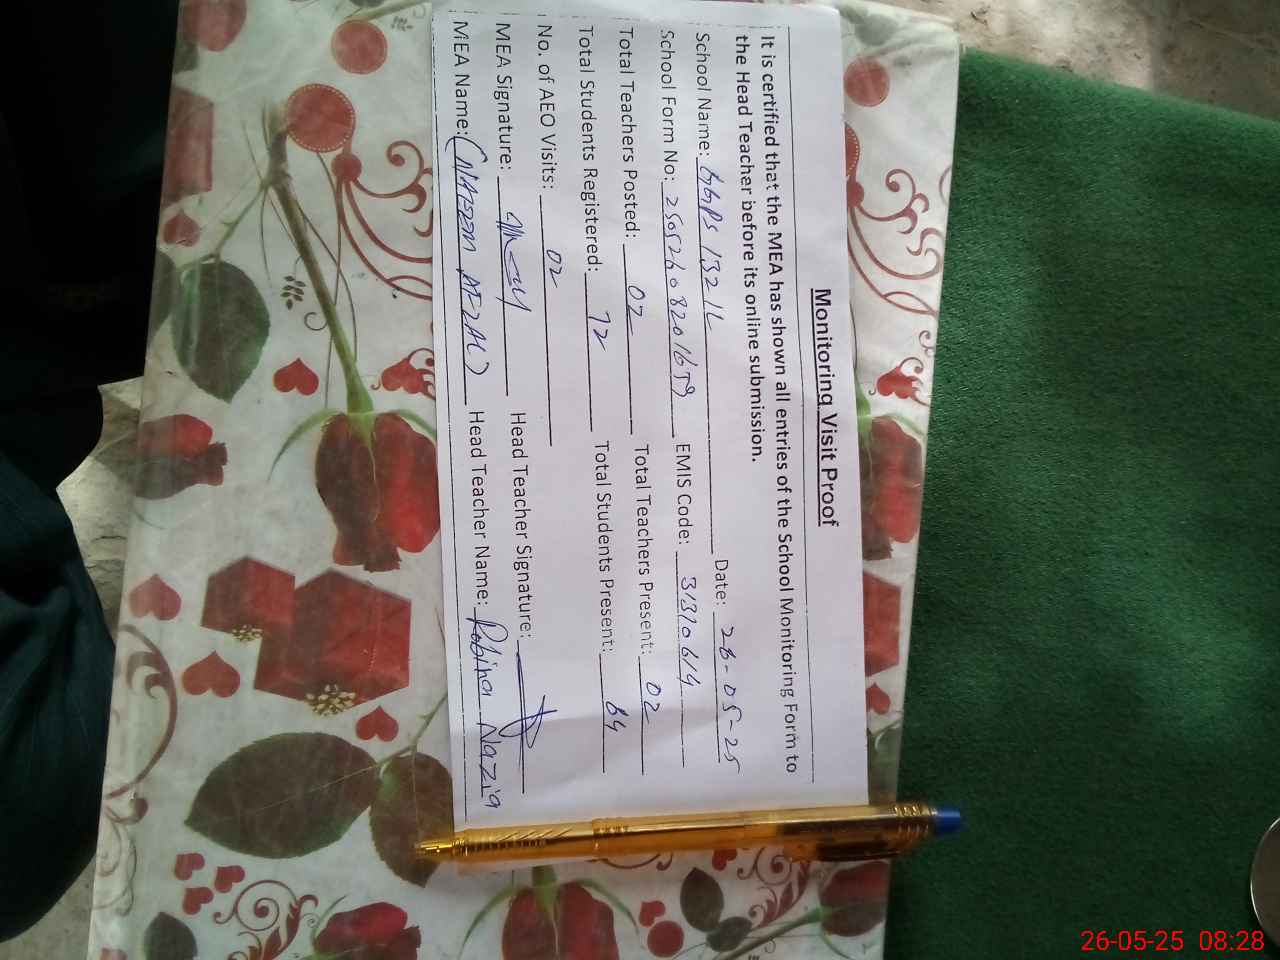 Monitoring Visit Proof
It is certified that the MEA has shown all entries of the School Monitoring Form to
the Head Teacher before its online submission.
School Name: GGPS 132 1L Date: 26-05-25
School Form No: EMIS Code: 31310614
Total Teachers Posted: 02 Total Teachers Present: 02
Total Students Registered: 72 Total Students Present: 64
No. of AEO Visits: 02
MEA Signature: Head Teacher Signature:
MEA Name: (NAEEM AFZAL) Head Teacher Name: Robina Nazia
26-05-25 08:28